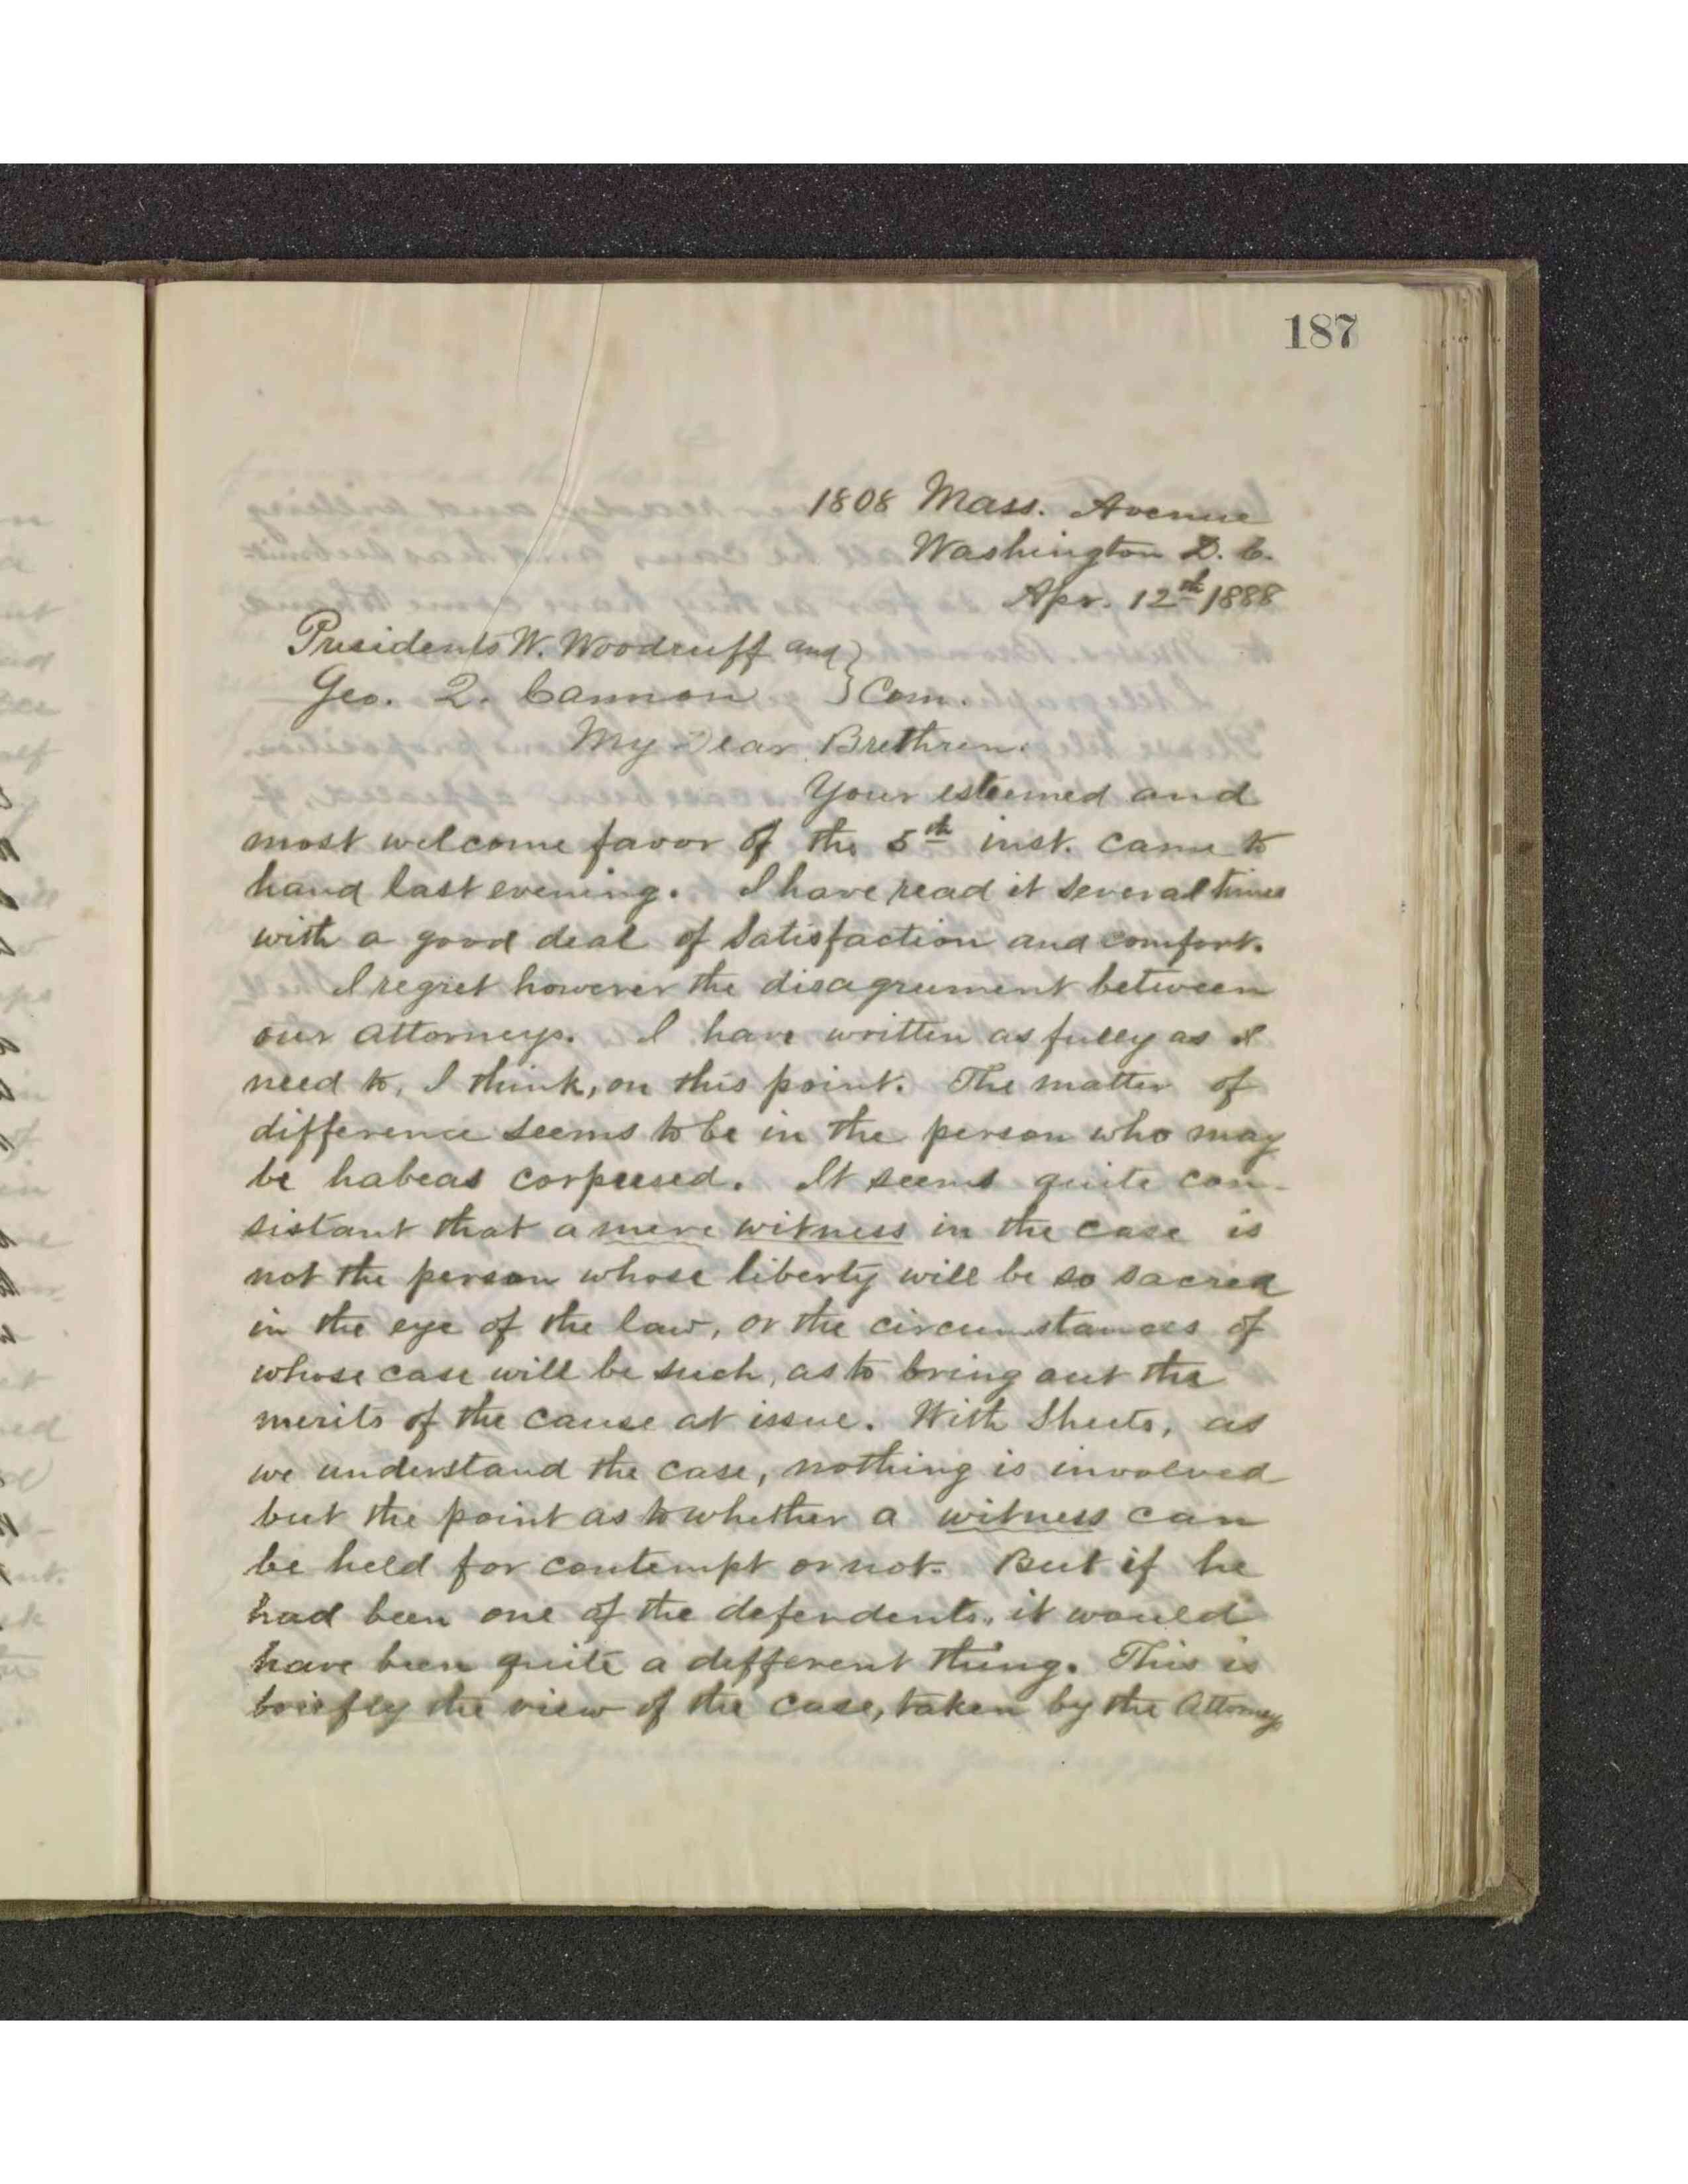 187
1808 Mass. Avenue
Washington D. C.
Apr. 12th 1888
Presidents W. Woodruff and }
Geo. Q. Cannon } Com.
My Dear Brethren:
Your esteemed and
most welcome favor of the 5th inst. came to
hand last evening. I have read it several times
with a good deal of satisfaction and comfort.
I regret however the disagrument between
our attorneys. I have written as fully as I
need to, I think, on this point. The matter of
difference seems to be in the person who may
be habeas corpused. It seems quite con-
sistant that a mere witness in the case is
not the person whose liberty will be so sacred
in the eye of the law, or the circumstances of
whose case will be such, as to bring out the
merits of the cause at issue. With Sheets, as
we understand the case, nothing is involved
but the point as to whether a witness can
be held for contempt or not. But if he
had been one of the defendents, it would
have been quite a different thing. This is
briefly the view of the case, taken by the Attorneys